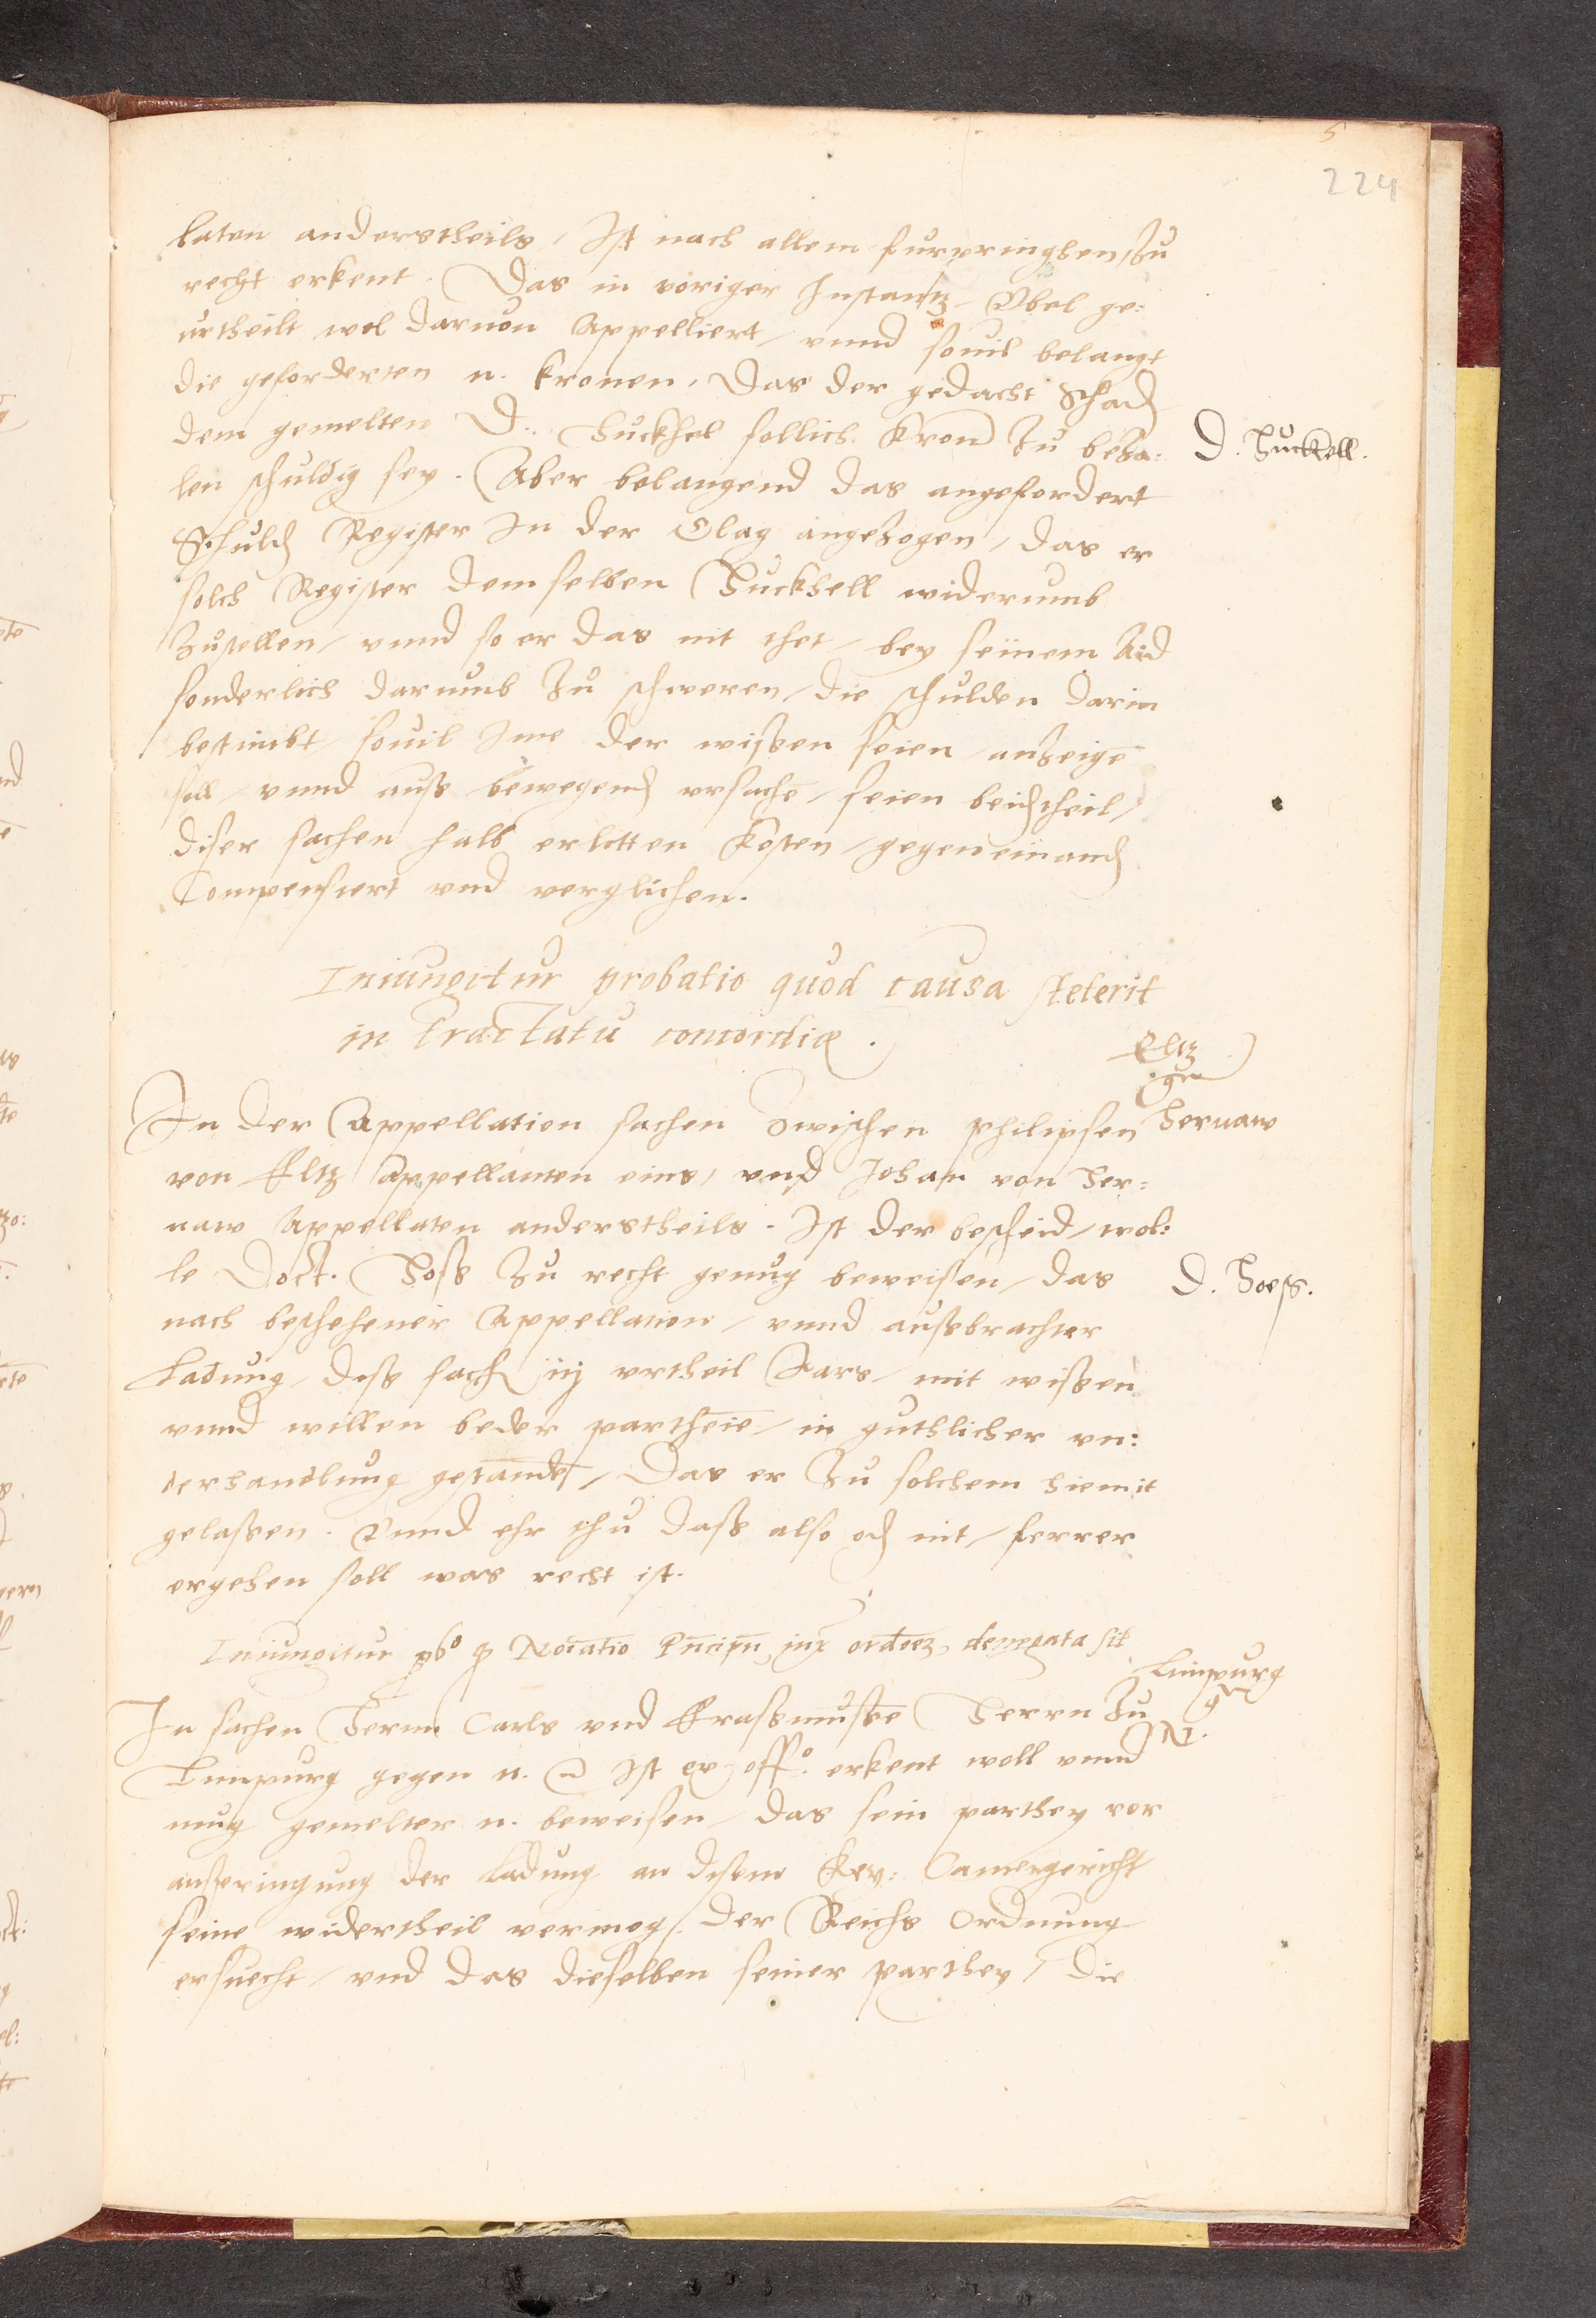 5
224
laten anderstheils, Ist nach allem furpringhen, zu
recht erkent. Das in voriger Instantz, Vbel ge:
urtheilt wol daruon Appelliert, vnnd souil belangt
die geforderten n. kronen, Das der gedacht Schad
dem gemelten D. Huckhel sollich kron zu beza:
D. Huckell.
len schuldig sey. Aber belangend das angefordert
Schuld Register In der Clag angezogen, das er
solch Register demselben Huckhell widerumb
Zustellen, vnnd so er das nit thet, bey seinem Aid
sonderlich darumb zu schweren, die schulden darin
bestimbt souil Ime der wißen seien, anzeige
soll, vnnd auß bewegend vrsache, seien beidtheil,
diser sachen halb erlitten Kosten, gegeneinand
Compensiert vnd verglichen.
Iniungitur probatio quod causa steterit
in tractatu concordiæ.
Eltz
gen
Hernaw
In der Appellation sachen Zwischen Philipsen
von Eltz Appellanten eins, vnd Johan von Her:
naw Appellaten anderstheils. Ist der bescheid, wol:
le Doct. Hoß zu recht genug beweisen, das
D. Hoeß.
nach beschehener Appellation, vnnd außbrachter
Ladung, diß sach iij vrtheil Jars, mit wißen
vnnd willen beder partheie, in guthlicher vn:
derhandlung gestande, Das er zu solchem hiemit
gelaßen. Vnnd ehr thu daß also od nit, ferrer
ergehen soll was recht ist.
Iniungitur pbo denegata sit
Limpurg
gen
N.
In sachen Herrn Carls vnd Eraßmuße Herrn zu
Limpurg gegen n. Ist ex offo. erkent woll vnnd
mug gemelter n. beweisen, das sein parthey vor
außpringung der Ladung an disem Key: Camergericht
seine widertheil vermog der Reichs Ordnung
ersuecht, vnd das dieselben seiner parthey, die